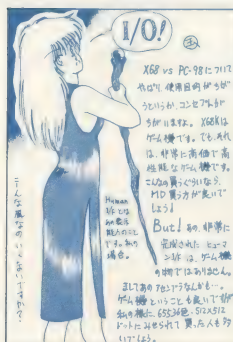 I/O!
X68 vs PC-98について
やはり、使用目的がちが
うというか、コンセプトが
ちがいますよ。X68Kは
ゲーム機です。でも、それ
は、非常に高価で高
性能なゲーム機です。
こんなの買うぐらいなら、
MD買う方が良いで
しょう!
But! あの、非常に
完成された ヒューマ
ンI/Fは、ゲーム機
の物ではありません。
ましてあのアセンブラなんかも…。
ゲーム機ということも良いですが
私の様に、65536色・512×512
ドットにみせられて買った人も多
いでしょう。
Human
I/Fとは
能力のこと
です。私の
場合。
こんな風なのいいんじゃないですか?